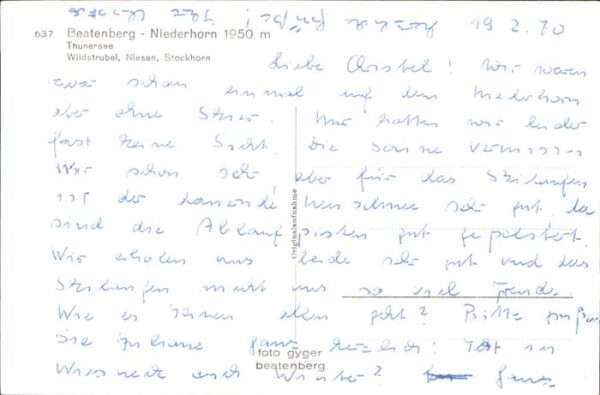 19 2. 70
637 Beatenberg - Niederhorn 1950 m
Thunersee
Wildstrubel, Niesen, Stockhorn
Liebe Christel! Wir waren
zwar schon einmal auf dem Niederhorn
aber ohne Skier. Nun hatten wir leider
fast keine Sicht. Die Sonne vermissen
wir schon sehr aber für das Skilaufen
ist der Neuschnee sehr gut, da
sind die Ablaufpisten gut gepolstert.
Wir erholen uns beide sehr gut und das
Skilaufen macht uns so viel Freude.
Wie es Ihnen allen geht? Bitte grüßen
Sie zuhause ganz herzlich! Ist in
auch Winter?
Originalaufnahme
foto gyger
beatenberg